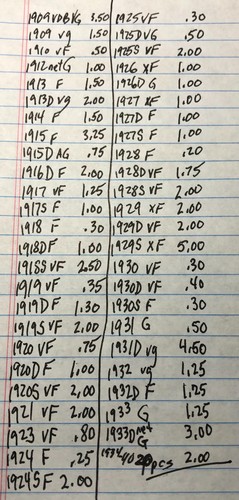 1909VDBVG 3.50
1909 vg 1.50
1910 vF .50
1912netG 1.00
1913 F 1.50
1913D vg 2.00
1914 F 1.50
1915 F 3.25
1915D AG .75
1916D F 2.00
1917 VF 1.25
1917S F 1.00
1918 F .30
1918D F 1.00
1918S VF 2.50
1919 vF .35
1919D F 1.30
1919S VF 2.00
1920 VF .75
1920D F 1.00
1920S VF 2.00
1921 VF 2.00
1923 VF .80
1924 F .25
1924S F 2.00
1925 VF .30
1925D VG .50
1925S VF 2.00
1926 XF 1.00
1926D G 1.00
1927 XF 1.00
1927D F 1.00
1927S F 1.00
1928 F .20
1928D VF 1.75
1928S VF 2.00
1929 XF 2.00
1929D VF 2.00
1929S XF 5.00
1930 VF .30
1930D VF .40
1930S F .30
1931 G .50
1931D vg 4.50
1932 vg 1.25
1932D F 1.25
1933 G 1.25
1933D net G 3.00
pcs 2.00